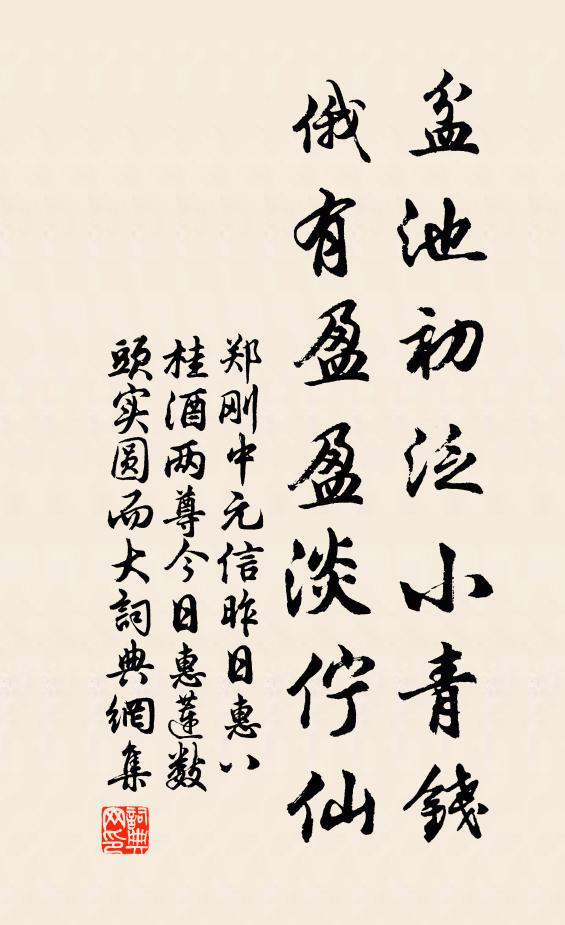 盆池初泛小青錢
俄有盈盈淡佇仙
郑刚中元信昨日惠八
桂酒两尊今日惠蓮数
頭实圆而大詞典網集
詞典网印